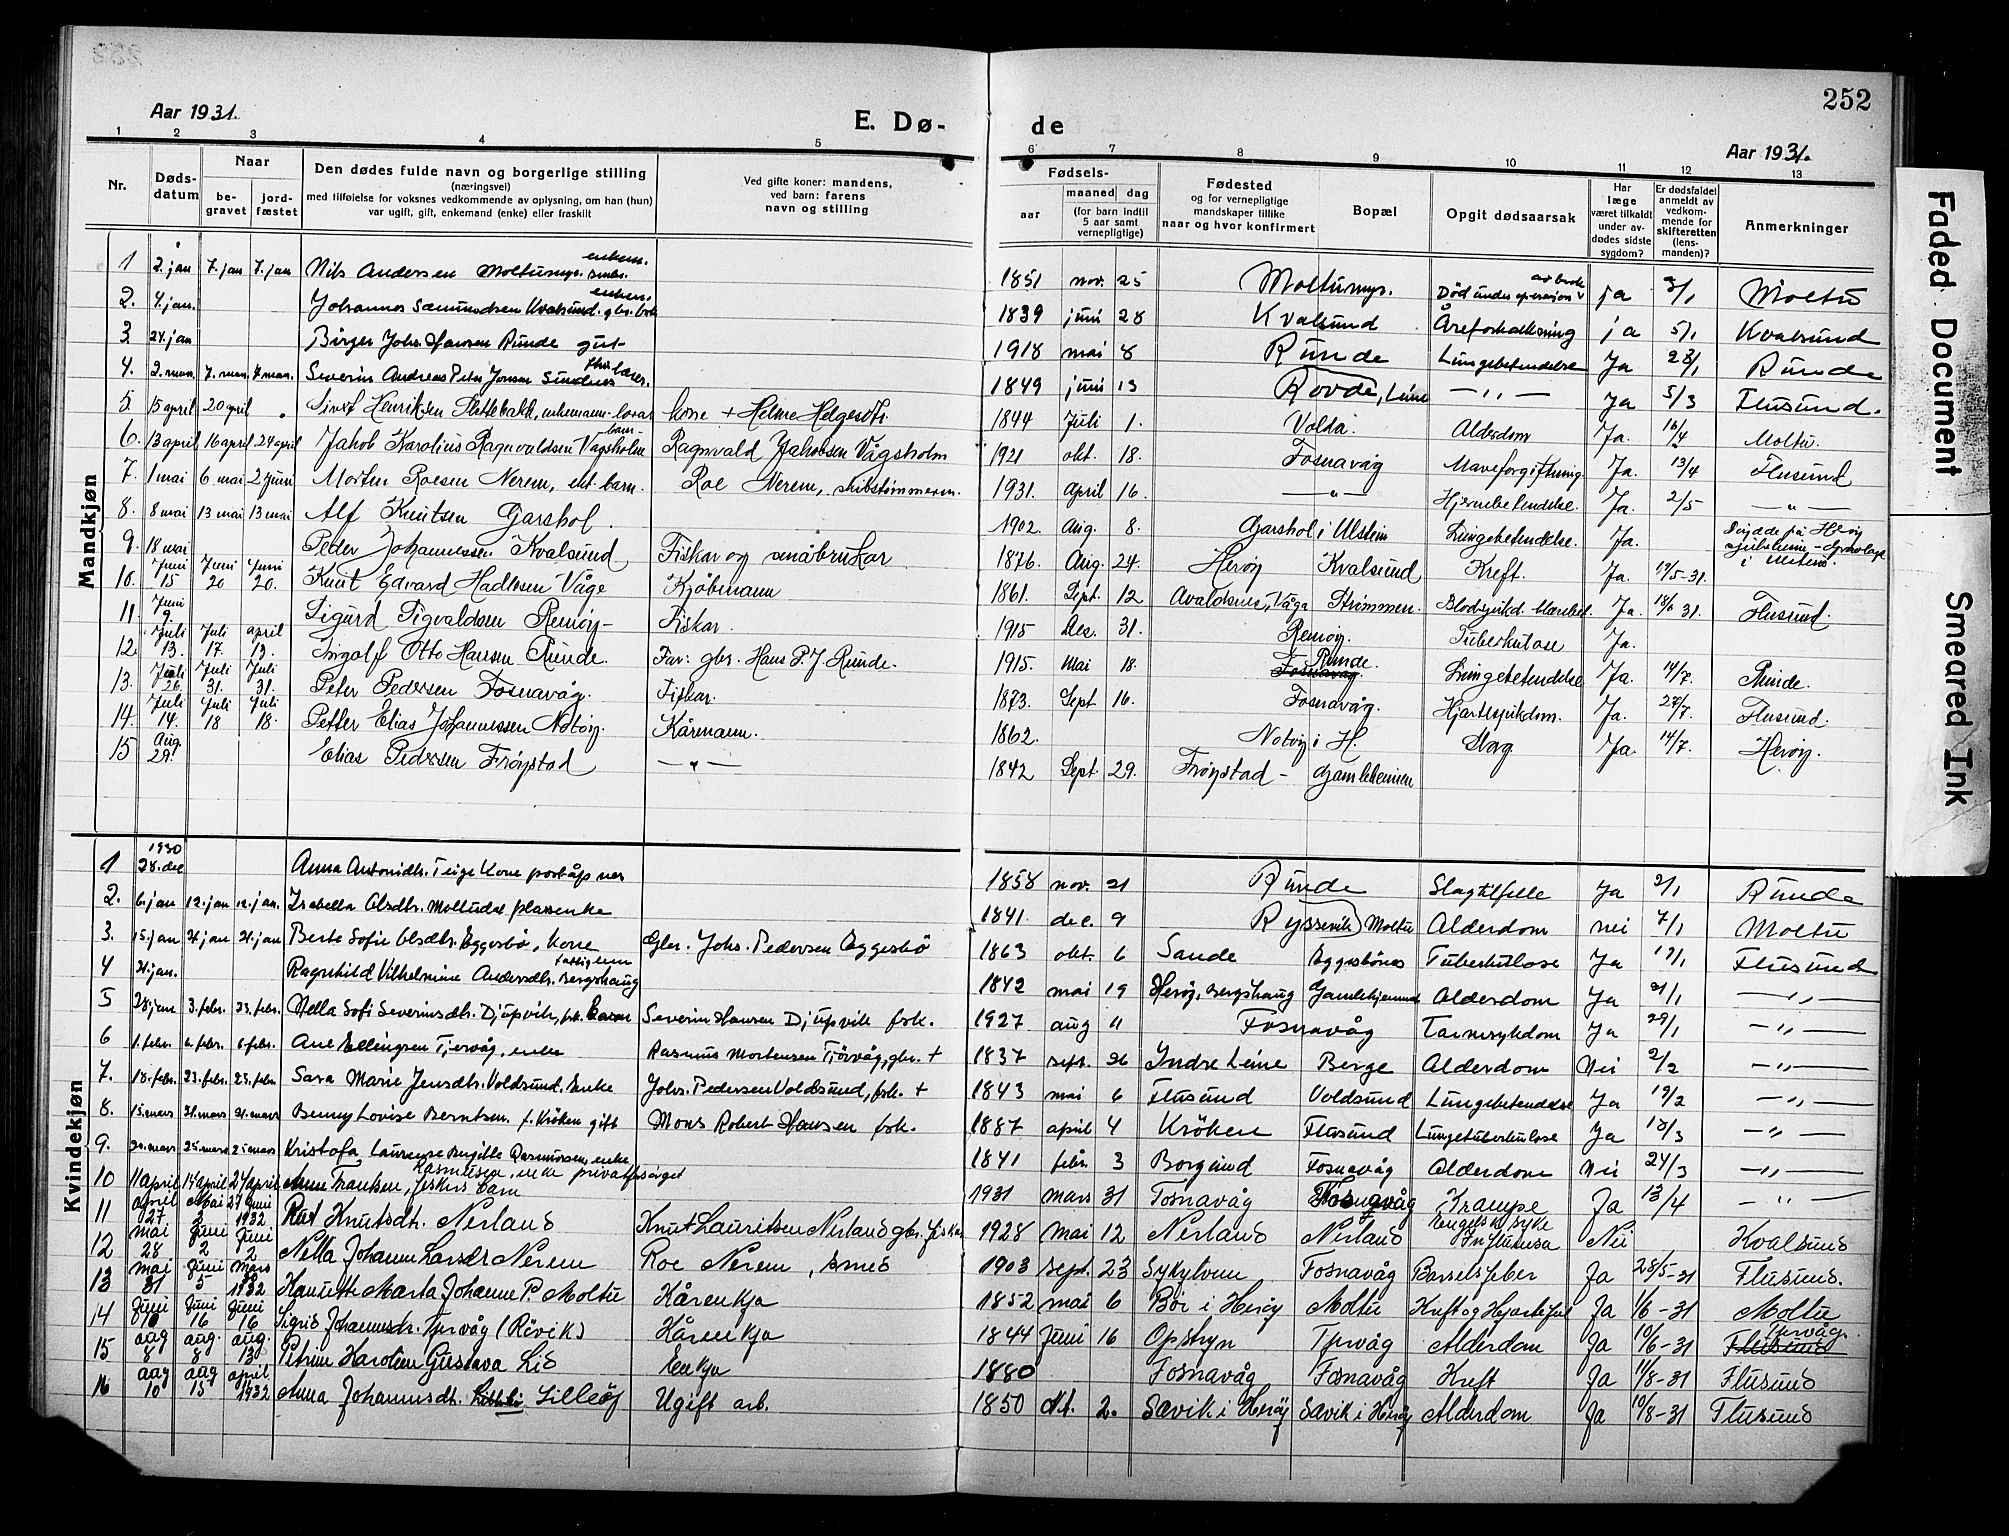 252
Aar 1931.
E. Dø-
de
Aar 1931.
1 2 3 4 5 6 7 8 9 10 11 12 13
Nr.
Døds-
datum
Naar
be-
gravet
jord-
fæstet
Den dødes fulde navn og borgerlige stilling
(næringsvei)
med tilføielse for voksnes vedkommende av oplysning, om han (hun)
var ugift, gift, enkemand (enke) eller fraskilt
Ved gifte koner: mandens,
ved barn: farens
navn og stilling
Fødsels-
aar
maaned dag
(for barn indtil
5 aar samt
vernepligtige)
Fødested
og for vernepligtige
mandskaper tillike
naar og hvor konfirmert
Bopæl
Opgit dødsaarsak
Har
læge
været tilkaldt
under av-
dødes sidste
sygdom?
Er dødsfaldet
anmeldt av
vedkom-
mende for
skifteretten
(lens-
manden)?
Anmerkninger
Mandkjøn
1 2. jan 7. jan 7. jan Nils Andersen Moltumyr. enkem. 1851 nov. 25 Moltumyr. Død under operasjon ja 3/1 Moltu
2. 4. jan. Johannes Sæmundsen Kvalsund. enkem. gbr. 1839 juni 28 Kvalsund Åreforkalkning ja 5/1 Kvalsund
3. 24. jan Birger Johs Hansen Runde gut 1918 mai 8 Runde Lungebetendelse Ja Runde
4. 2. mars. 7. mars. 7 mars. Severin Andreas Peter Jonsen 1849 juni 13 Rovde, Leine — „ — Ja 5/3 Flusund.
5. 15 april 20 april Henriksen enkemann kone + Helene 1844 Juli 1. Volda. Alderdom Ja. 16/4 Moltu.
6. 13 april 16 april 24 april Jakob Karolius Ragnvaldsen Vågsholm barn Ragnvald Jakobsen Vågsholm 1921 okt. 18. Fosnavåg Maveforgiftning Ja. 13/4 Flusund
7. 1 mai 6 mai 2 juni Morten Roesen Nerem, barn. Roe Nerem, 1931. April 16. — „ — Ja. 2/5 — „ —
8. 8 mai 13 mai 13 mai Alf Knutsen Garshol. 1902. Aug. 8. Garshol i Ulstein Lungebetendelse. Ja.
9. 18 mai Peder Johannessen Kvalsund Fiskar og småbrukar 1876. Aug. 24. Herøy Kvalsund Kreft. Ja. 19/5-31.
10. Juni 15 Juni 20 Juni 20. Knut Edvard Våge Kjøbmann 1861. Sept. 12 Avaldsnes, Våga Strømmen. Ja. 18/6 31. Flusund.
11. Juni 9. Sigurd Sigvaldsen Remøy Fiskar. 1915 Des. 31. Remøy. Tuberkulose Ja.
12. Juli 13. Juli 17. april 13. Ingolf Otto Hansen Runde. Far: gbr. Hans P. J. Runde. 1915. Mai 18. Fosnavåg Runde. Lungebetendelse Ja. 14/7. Runde.
13. Juli 26. Juli 31. Juli 31. Peter Pedersen Fosnavåg. Fiskar. 1873. Sept 16. Fosnavåg. Hjartesjukdom. Ja. 27/7. Flusund.
14. Juli 14. Juli 18 Juli 18. Petter Elias Johannessen Notøy. Kårmann. 1862. Notøy i H. Slag Ja. 14/7. Herøy.
15 Aug. 29. Elias Pedersen Frøystad — „ — 1842 Sept. 29. Frøystad - Gamleheimen
Kvindekjøn
1 1930 28. des Anna Antonidtr. Teige Kone 1858 nov. 21 Runde Slagtilfelle Ja 2/1 Runde
2. 6. jan 12. jan 12. jan. Isabella Olsdtr. Moltudal plassenke 1841. dec. 9 Ryssevik Moltu Alderdom nei 7/1 Moltu
3. 15. jan 21. jan 21. jan Berte Sofie Olsdtr. Eggesbø, kone Gbr. Johs. Pedersen Eggesbø 1863 okt. 6 Sande Eggesbønes Tuberkulose Ja 17/1 Flusund
4 21. jan. Ragnhild Vilhelmine Andersdtr. Bergshaug 1842 mai 19 Herøy, Bergshaug Gamlehjemmet Alderdom Ja 21/1 — „ —
5 28. jan 3. febr. 23. febr. Nella Sofi Severinsdtr. Djupvik, fsk. barn Severin Hansen Djupvik fsk. 1927 aug 11 Fosnavåg Tarmsykdom Ja 29/1 — „ —
6 1. febr. 6. febr. 6. febr. Ane Ellingsen Tjørvåg, enke Rasmus Mortensen Tjörvåg, gbr. + 1837 sept. 26 Indre Leine Berge Alderdom Nei 2/2 — „ —
7. 18. febr. 23. febr. 23. febr. Sara Marie Jensdtr. Voldsund. Enke Johs. Pedersen Voldsund, fsk. + 1843 mai 6 Flusund Voldsund Lungebetendelse Ja 19/2 — „ —
8. 15. mars 21. mars 21. mars Benny Lovise Berntsen. f. Kröken gift Mons Robert Hansen fsk. 1887 april 4 Kröken Flusund Lungetuberkulose Ja 18/3 — „ —
9. 20. mars 25. mars 25. mars Kristofa Laurense Birgitte Rasmussen, enke 1841 febr. 3 Borgund Fosnavåg Alderdom Nei 24/3 — „ —
10 11 april 14 april 24 april Anne Frantsen, fiskers barn 1931 mars 31 Fosnavåg Fosnavåg Krampe Ja 13/4 — „ —
11 april 27 Mai 2 27 juni 1932 Rut Knutsdtr. Nerland Knut Lauritsen Nerland gbr. fiskar 1928 Mai 12 Nerland Nerland Engelsk syke Influensa Nei Kvalsund
12 mai 28 Juni 2 Juni 2 Nella Johanne Larsdtr Nerem Roe Nerem, smed 1903 sept. 23 Sykylven Fosnavåg Barselsfeber Ja 28/5-31 Flusund.
13 mai 31 Juni 5 mars 1932 Hanette Marta Johanne P. Moltu Kårenkja 1852 mai 6 Bø i Herøy Moltu Kreft og Hjartefeil Ja 1/6-31 Moltu
14 Juni 10 Juni 16 Juni 16 Sigrid Johannesdtr. Tjrvåg (Røvik) Kårenkja 1844 Juni 16 Opstryn Tjrvåg Alderdom Ja 10/6-31 Flusund Tjrvåg.
15 aug 8 aug. 8 aug. 13 Petrine Karoline Gustava Lid Enkja 1880 Fosnavåg Fosnavåg Kreft Ja 11/8-31 Flusund
16 aug 10 aug 15 april 1932 Anna Johannesdtr. Lilleøy Ugift arb. 1850 okt. 2. Sævik i Herøy Sævik i Herøy Alderdom Ja 10/8-31 Flusund
Faded Document
Smeared Ink